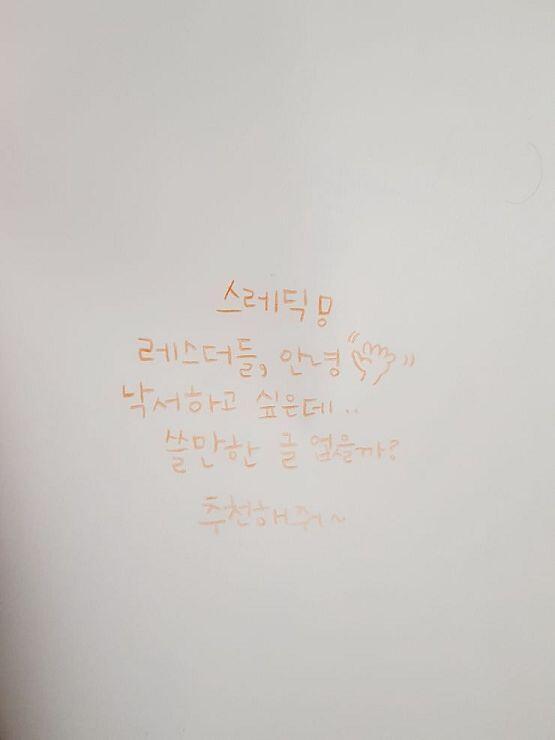 스레딕!
레스더들, 안~녕
낙서하고 싶은데..
쓸만한 글 없을까?
추천해줘~